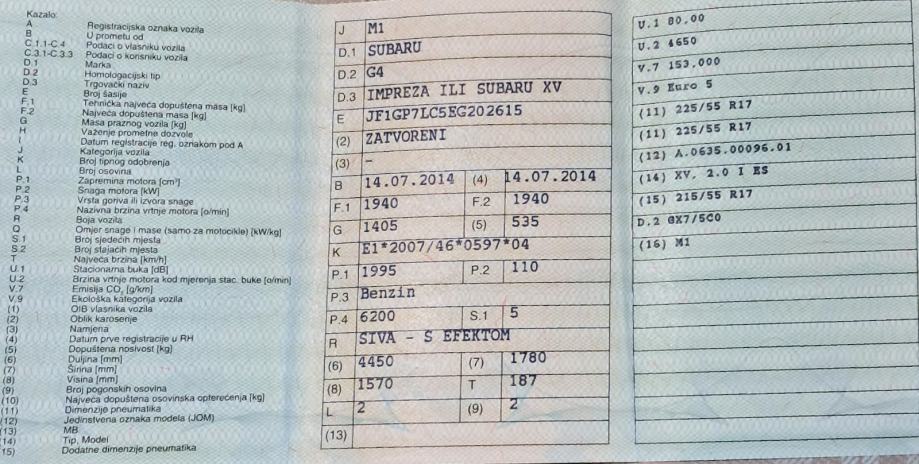 Kazalo:
A Registracijska oznaka vozila
B U prometu od
C.1.1-C.4 Podaci o vlasniku vozila
C.3.1-C.3.3 Podaci o korisniku vozila
D.1 Marka
D.2 Homologacijski tip
D.3 Trgovački naziv
E Broj šasije
F.1 Tehnička najveća dopuštena masa [kg]
F.2 Najveća dopuštena masa [kg]
G Masa praznog vozila [kg]
H Važenje prometne dozvole
I Datum registracije reg. oznakom pod A
J Kategorija vozila
K Broj tipnog odobrenja
L Broj osovina
P.1 Zapremina motora [cm³]
P.2 Snaga motora [kW]
P.3 Vrsta goriva ili izvora snage
P.4 Nazivna brzina vrtnje motora [o/min]
R Boja vozila
Q Omjer snage i mase (samo za motocikle) [kW/kg]
S.1 Broj sjedećih mjesta
S.2 Broj stajaćih mjesta
T Najveća brzina [km/h]
U.1 Stacionarna buka [dB]
U.2 Brzina vrtnje motora kod mjerenja stac. buke [o/min]
V.7 Emisija CO₂ [g/km]
V.9 Ekološka kategorija vozila
(1) OIB vlasnika vozila
(2) Oblik karoserije
(3) Namjena
(4) Datum prve registracije u RH
(5) Dopuštena nosivost [kg]
(6) Duljina [mm]
(7) Širina [mm]
(8) Visina [mm]
(9) Broj pogonskih osovina
(10) Najveća dopuštena osovinska opterećenja [kg]
(11) Dimenzije pneumatika
(12) Jedinstvena oznaka modela (JOM)
(13) MB
(14) Tip, Model
(15) Dodatne dimenzije pneumatika
J M1
D.1 SUBARU
D.2 G4
D.3 IMPREZA ILI SUBARU XV
E JF1GP7LC5EG202615
(2) ZATVORENI
(3) -
B 14.07.2014 (4) 14.07.2014
F.1 1940 F.2 1940
G 1405 (5) 535
K E1*2007/46*0597*04
P.1 1995 P.2 110
P.3 Benzin
P.4 6200 S.1 5
R SIVA - S EFEKTOM
(6) 4450 (7) 1780
(8) 1570 T 187
L 2 (9) 2
(13)
U.1 80,00
U.2 4650
V.7 153,000
V.9 Euro 5
(11) 225/55 R17
(11) 225/55 R17
(12) A.0635.00096.01
(14) XV, 2.0 I ES
(15) 215/55 R17
D.2 GX7/5C0
(16) M1